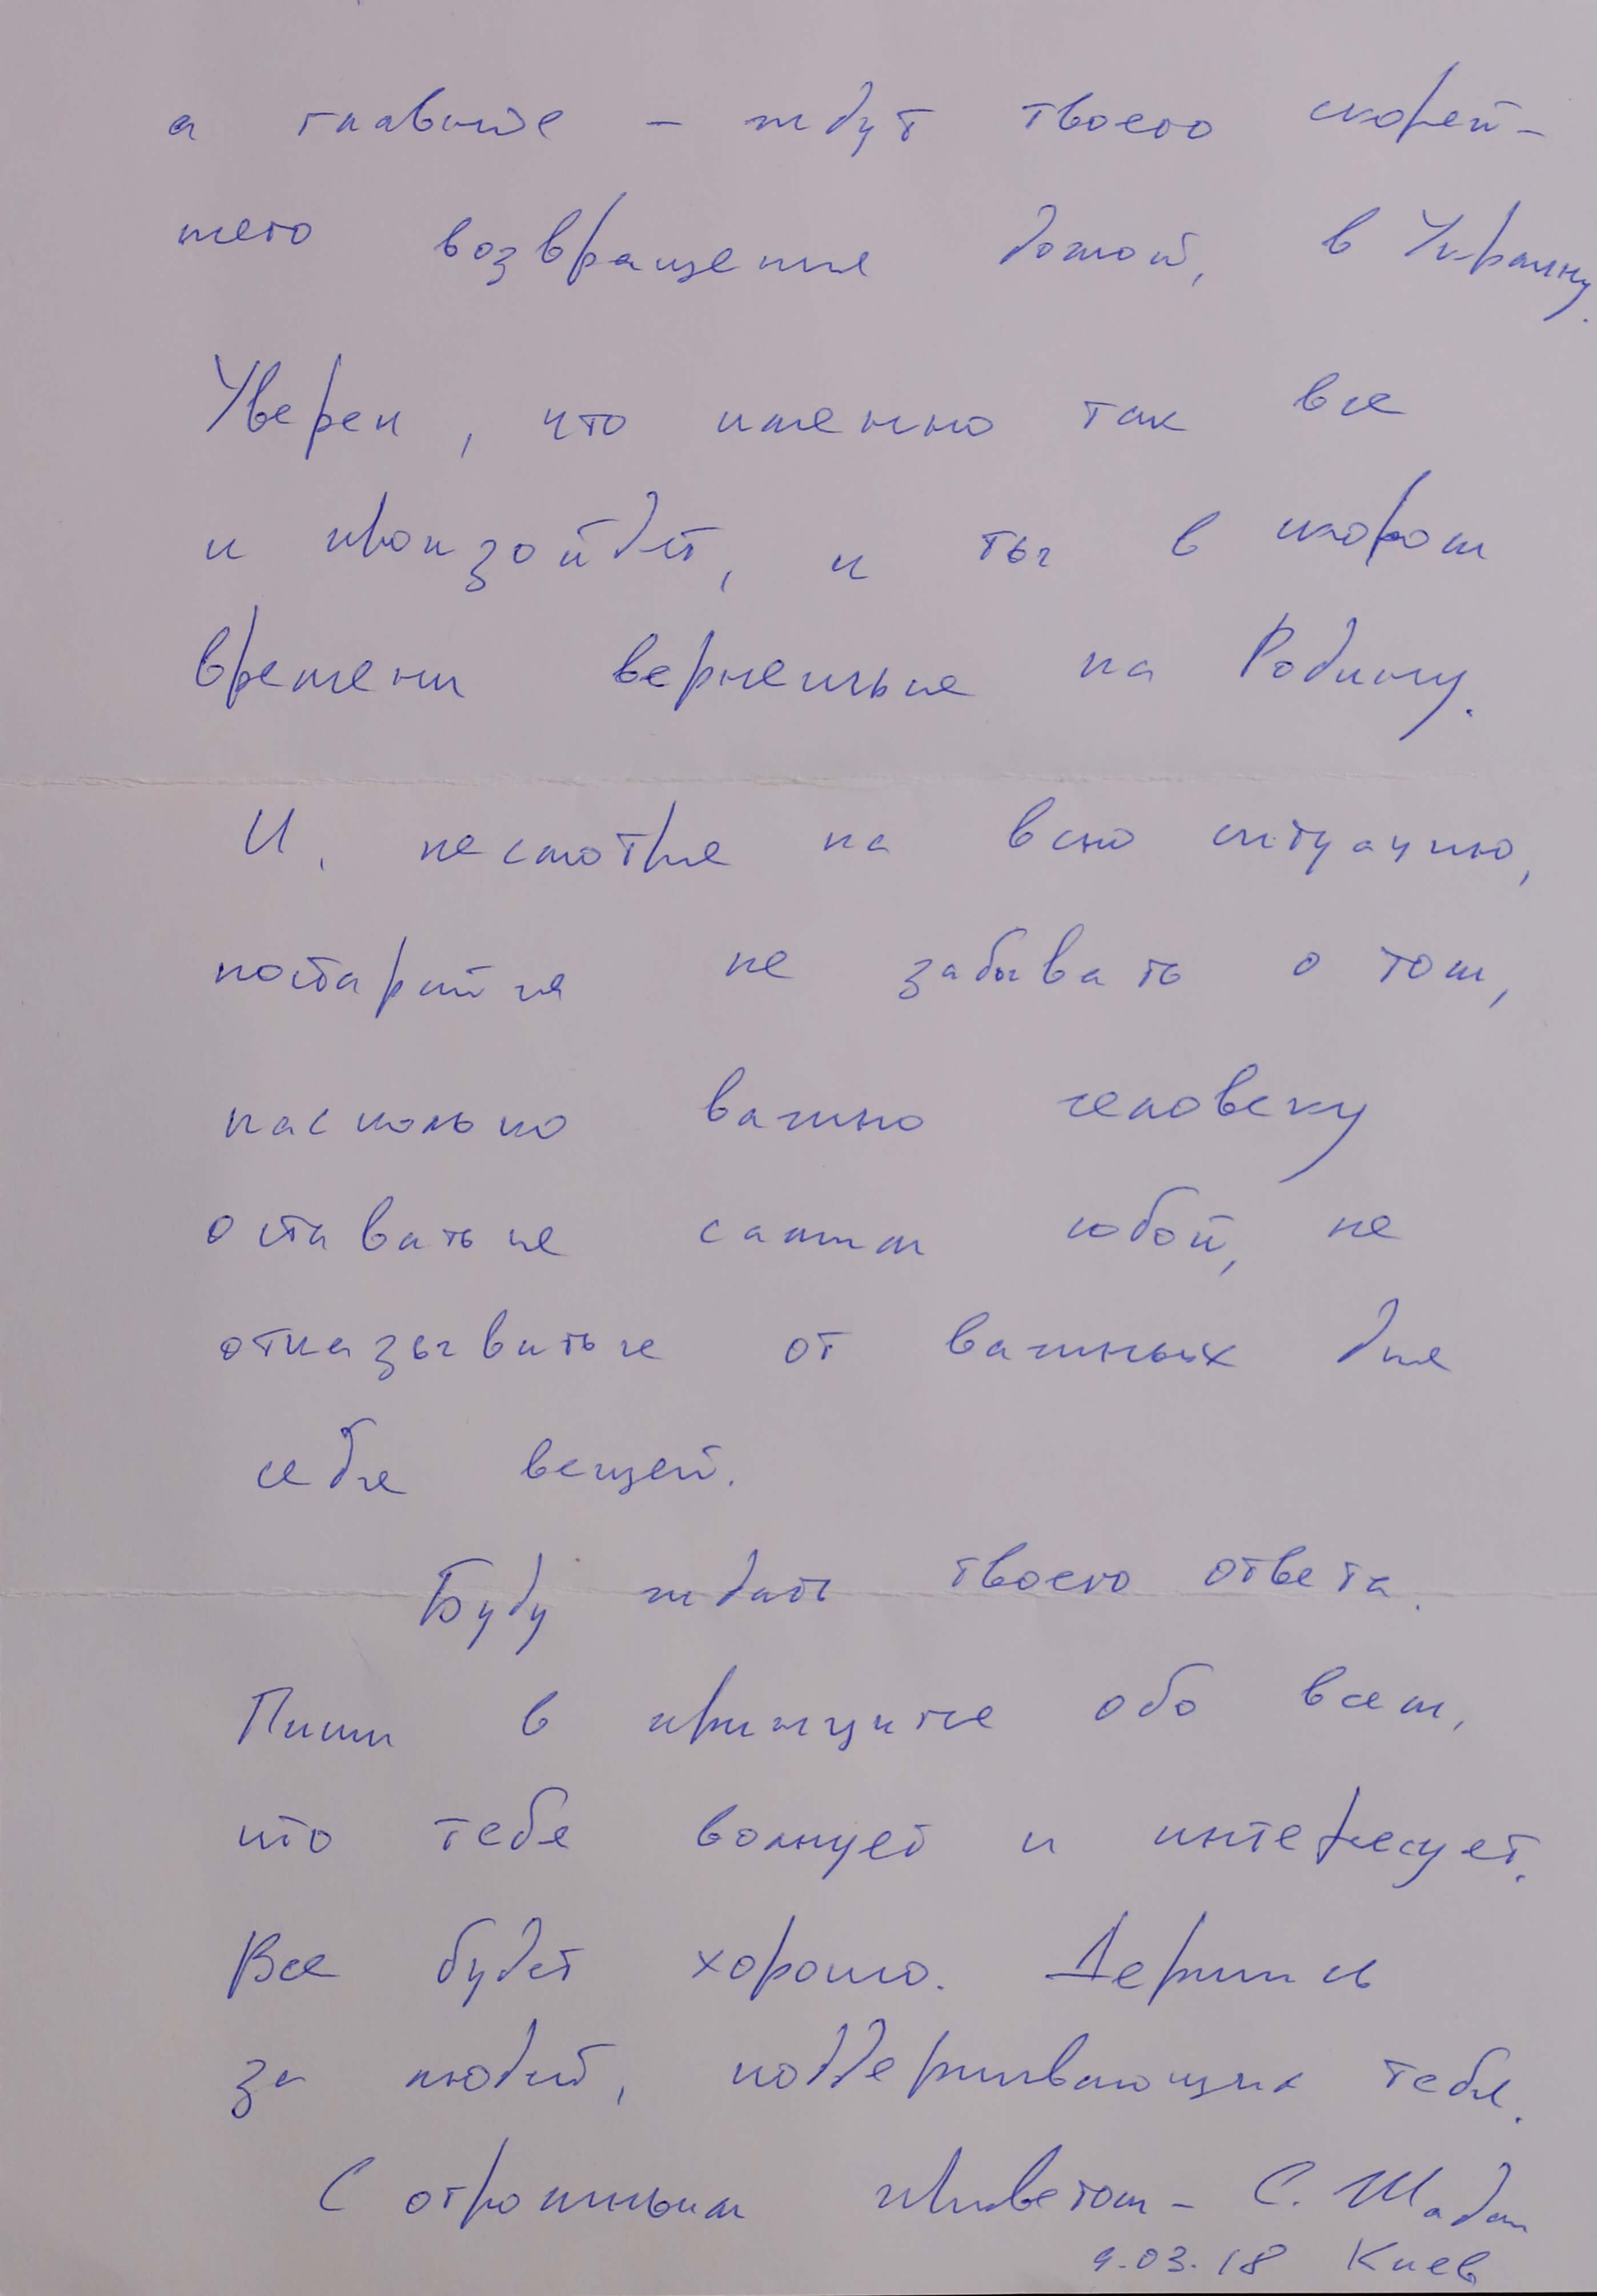 а главное – ждут твоего скорей-
шего возвращения домой, в Украину.
Уверен, что именно так все
и произойдет, и ты в скором
времени вернешься на Родину.
И, несмотря на всю ситуацию,
постарайся не забывать о том,
насколько важно человеку
оставаться самим собой, не
отказываться от важных для
себя вещей.
Буду ждать твоего ответа.
Пиши в принципе обо всем,
что тебя волнует и интересует.
Все будет хорошо. Держись
за людей, поддерживающих тебя.
С огромным приветом – С. Жадан
9.03.18 Киев